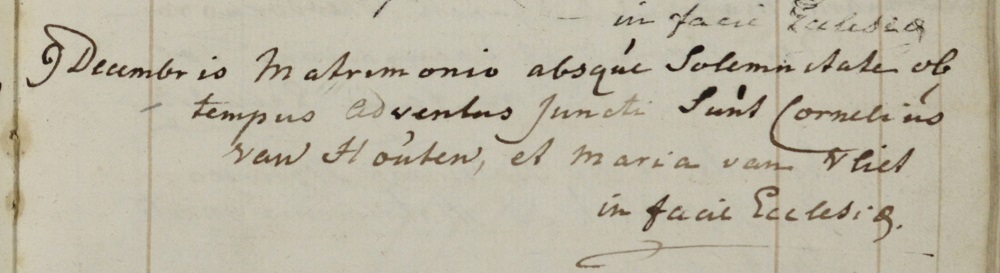 in facie Ecclesiæ
9 Decembris Matrimonio absque Solemnitate ob
tempus adventus Juncti Sunt Cornelius
van Houten, et Maria van Vliet
in facie Ecclesiæ.